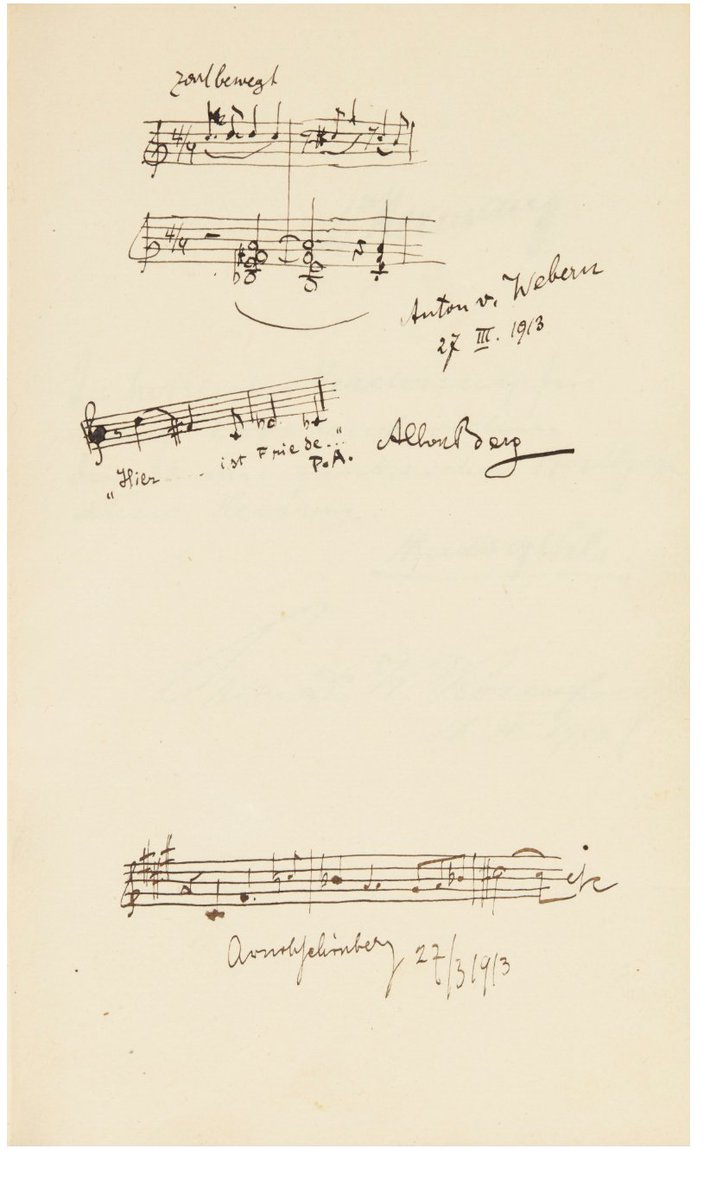 zart bewegt
4/4
4/4
Anton v. Webern
27 III. 1913
„Hier ..... ist Friede..."
P.A.
Alban Berg
Arnold Schönberg 27/3 1913